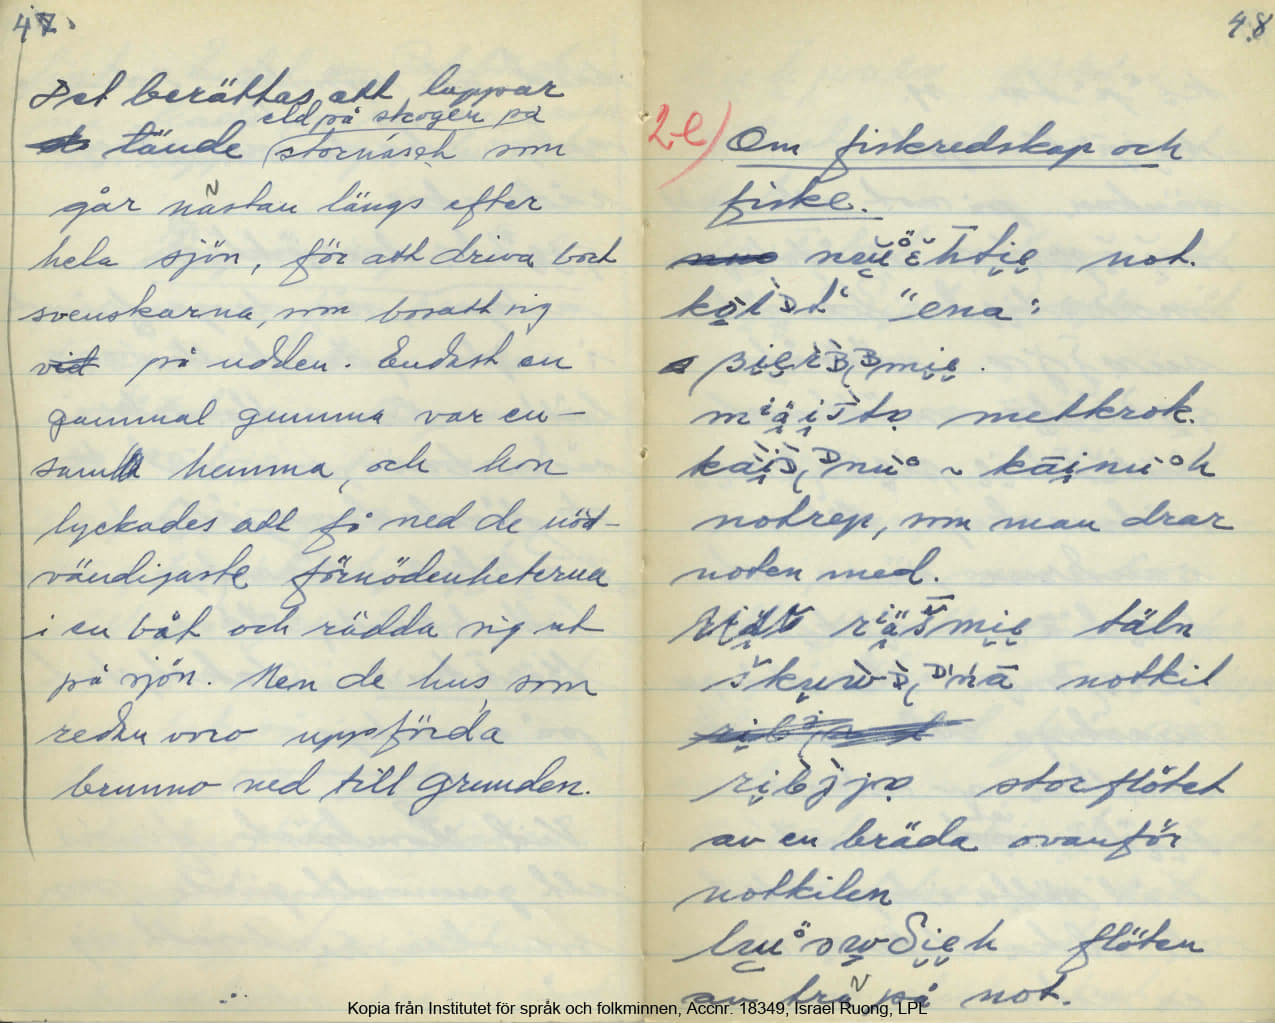 47.
Det berättas att lappar
eld på skogen på
tände stornäset som
går nästan längs efter
hela sjön, för att driva bort
svenskarna, som bosatt sig
vid på udden. Endast en
gammal gumma var en-
sam hemma, och hon
lyckades att få ned de nöd-
vändigaste förnödenheterna
i en båt och rädda sig ut
på sjön. Men de hus, som
redan voro uppförda
brunno ned till grunden.
48
2-e) Om fiskredskap och
fiske.
not.
"ena"
metkrok.
~
notrep, som man drar
noten med.
täln
notkil
storflötet
av en bräda ovanför
notkilen
flöten
av trä på not.
Kopia från Institutet för språk och folkminnen, Accnr. 18349, Israel Ruong, LPL